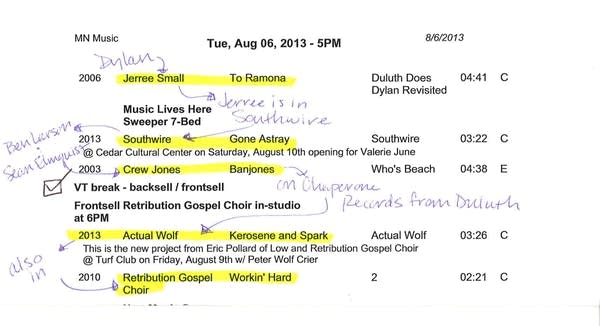 MN Music
Tue, Aug 06, 2013 - 5PM
8/6/2013
Dylan
2006 Jerree Small To Ramona Duluth Does 04:41 C
Dylan Revisited
Jerree is in
Southwire
Music Lives Here
Sweeper 7-Bed
Ben Larson
Sean Elmquist
2013 Southwire Gone Astray Southwire 03:22 C
@ Cedar Cultural Center on Saturday, August 10th opening for Valerie June
2003 Crew Jones Banjones Who's Beach 04:38 E
VT break - backsell / frontsell
on Chaperone
Records from Duluth
Frontsell Retribution Gospel Choir in-studio
at 6PM
2013 Actual Wolf Kerosene and Spark Actual Wolf 03:26 C
This is the new project from Eric Pollard of Low and Retribution Gospel Choir
@ Turf Club on Friday, August 9th w/ Peter Wolf Crier
also
in
2010 Retribution Gospel Workin' Hard 2 02:21 C
Choir